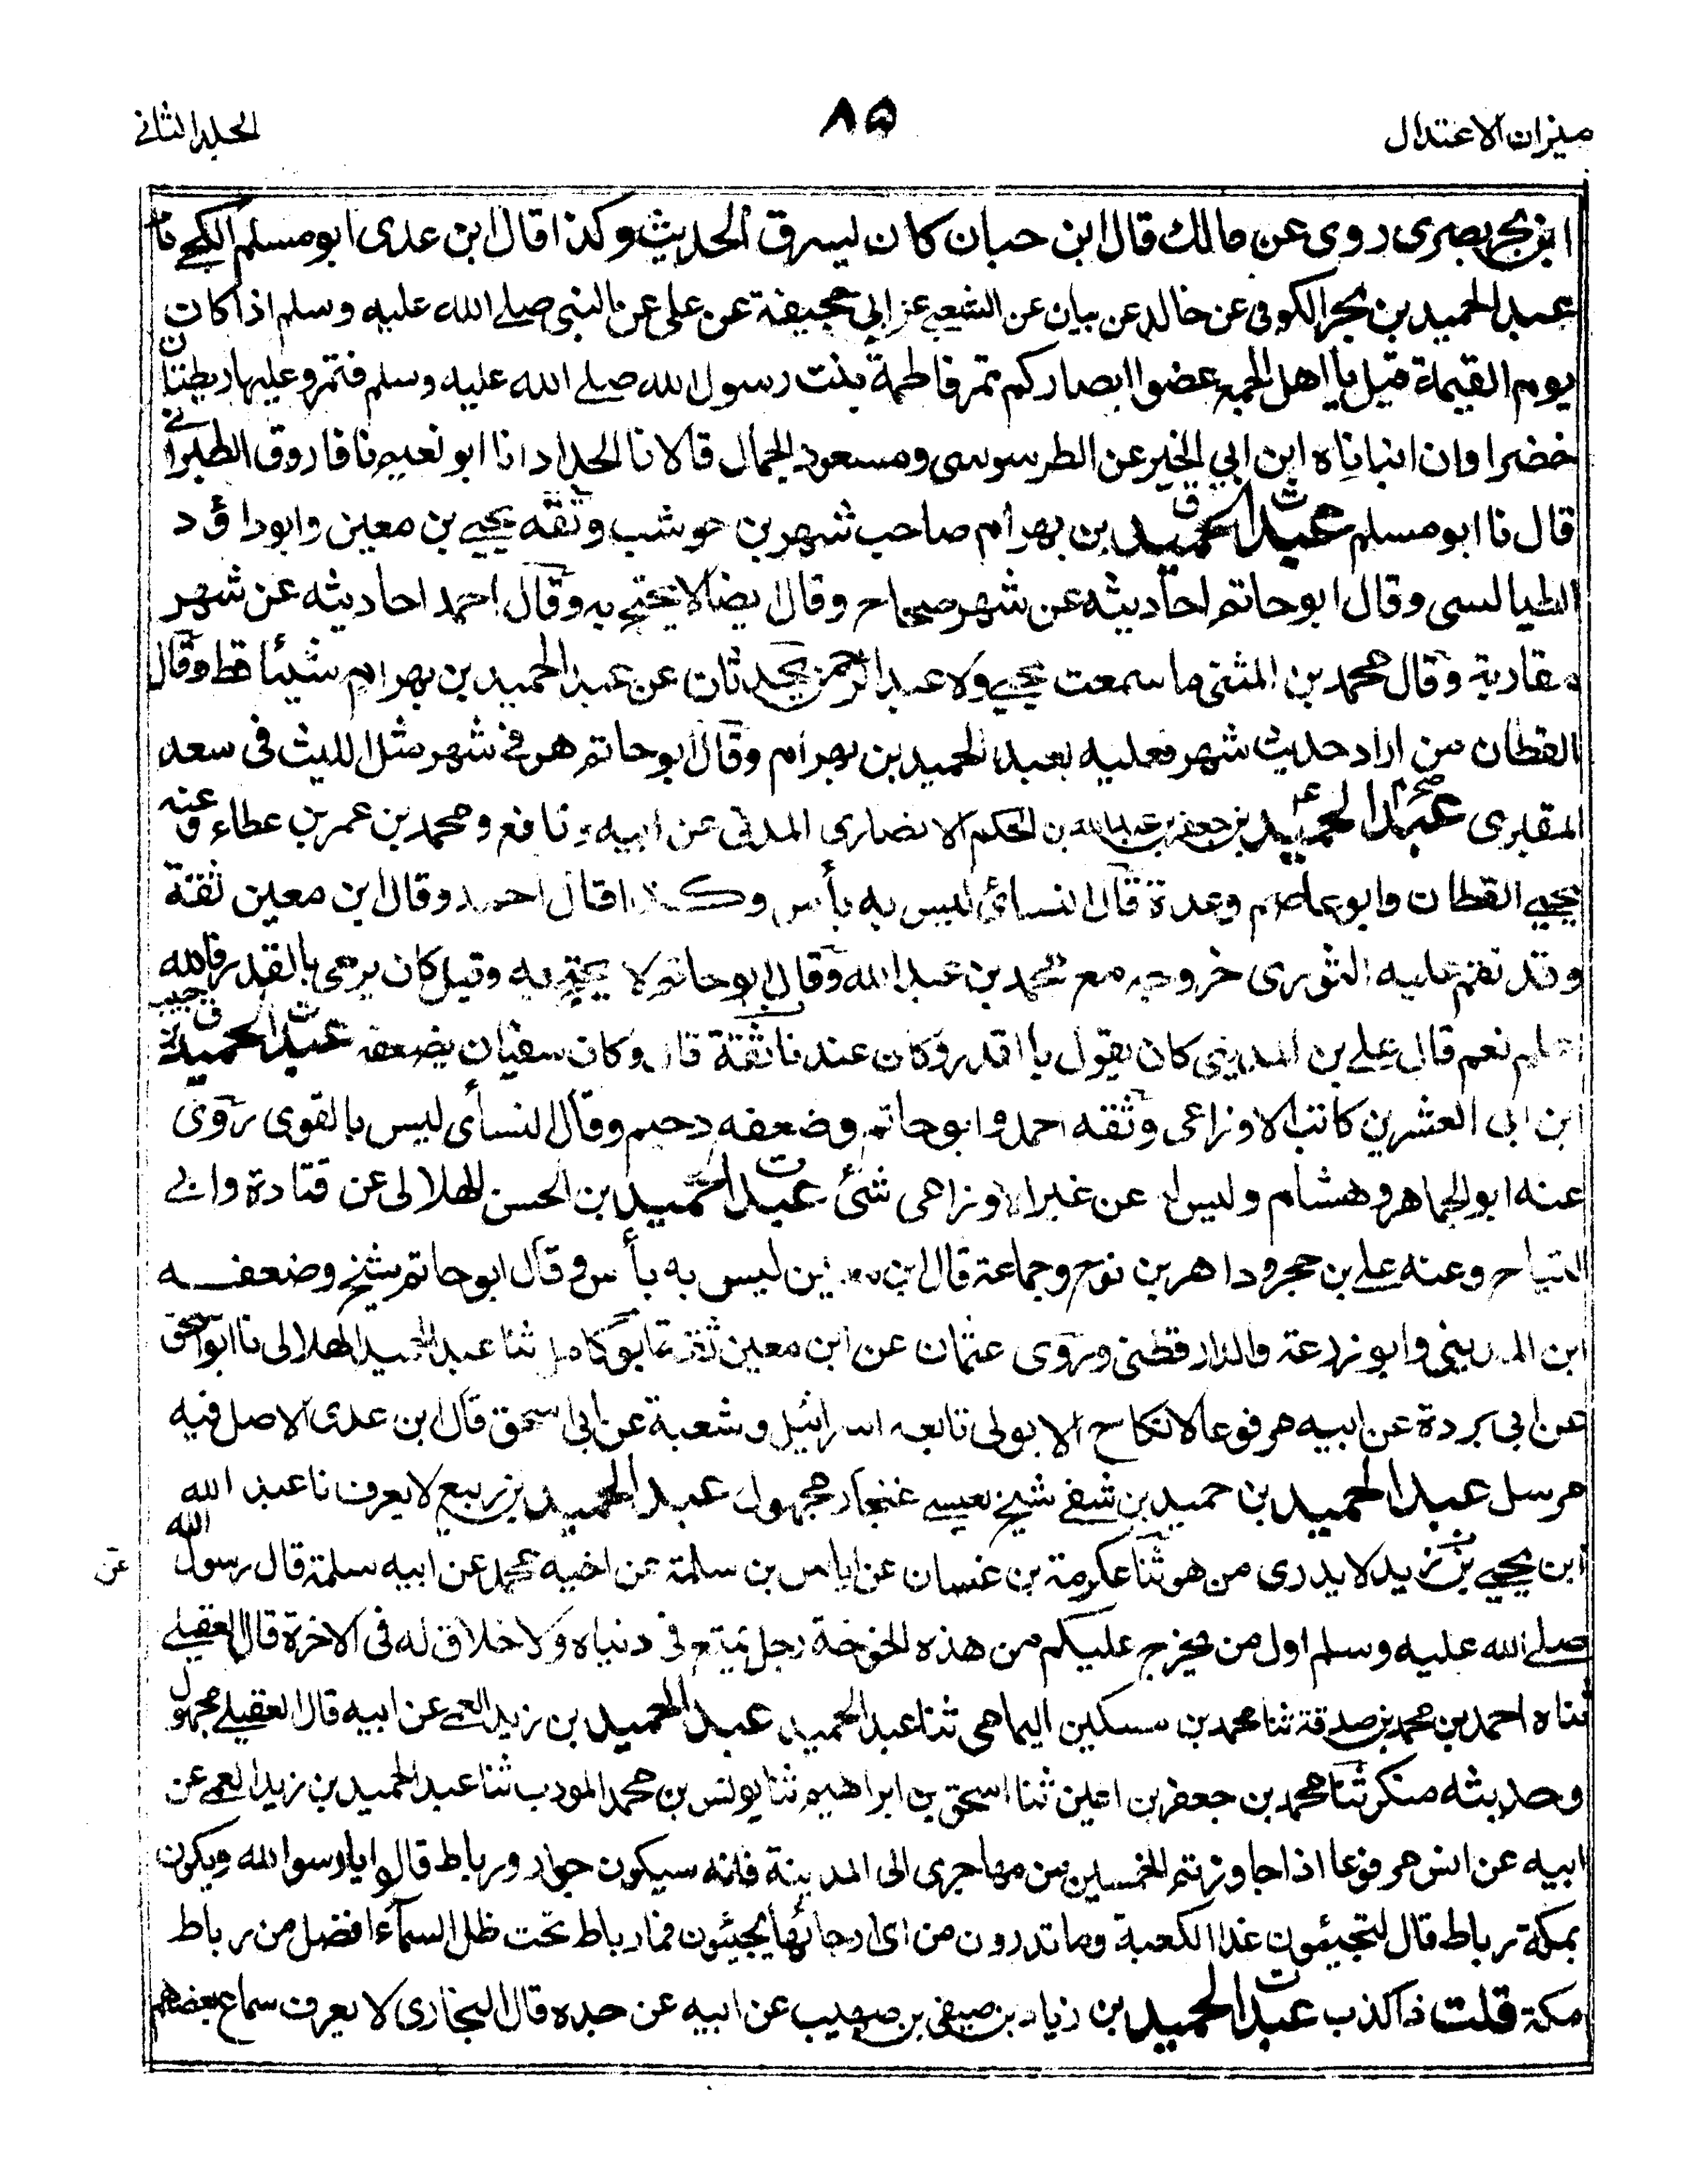 ميزان الاعتدال
٨٥
الجلد الثانى
ابن بحر بصرى روى عن مالك قال ابن حبان كان يسرق الحديث وكذا قال ابن عدى ابو مسلم الكجے نا
عبد الحميد بن بحر الكوفى عن خالد عن بيان عن الشعبے عن ابي جحيفة عن على عن النبى صلے الله عليه وسلم اذا كان
يوم القيمة قيل يا اهل الجمع غضوا ابصاركم تمر فاطمة بنت رسول الله صلے الله عليه وسلم فتمر وعليها ريطتان
خضراوان انبأناه ابن ابي الخير عن الطرسوسى ومسعود الجمال قالا نا الحداد انا ابو نعيم نا فاروق الطبرانے
قال نا ابو مسلم عبد الحميد ت ق بن بهرام صاحب شهر بن حوشب وثقه يحيے بن معين وابو داؤد
الطيالسى وقال ابو حاتم احاديثه عن شهر صحاح وقال ايضا لا يحتج به وقال احمد احاديثه عن شهر
مقاربة وقال محمد بن المثنى ما سمعت يحيے ولا عبد الرحمن يحدثان عن عبد الحميد بن بهرام شيئا قط وقال
القطان من اراد حديث شهر فعليه بعبد الحميد بن بهرام وقال ابو حاتم هو فے شهر مثل الليث فى سعد
المقبرى عبد الحميد صح م عـ بن جعفر بن عبد الله بن الحكم الانصارى المدنى عن ابيه و نافع ومحمد بن عمر بن عطاء وعنه
يحيے القطان وابو عاصم وعدة قال النسائى ليس به بأس وكذا قال احمد وقال ابن معين ثقة
وقد نقم عليه الثورى خروجه مع محمد بن عبد الله وقال ابو حاتم لا يحتج به وقيل كان يرمى بالقدر فالله
اعلم نعم قال علے بن المدينى كان يقول بالقدر وكان عندنا ثقة قال وكان سفيان يضعفه عبد الحميد ت ق بن حبيب
ابن ابى العشرين كاتب الاوزاعى وثقه احمد وابو حاتم وضعفه دحيم وقال النسأى ليس بالقوى روى
عنه ابو الجماهر وهشام وليس له عن غير الاوزاعى شئ عبد الحميد ت بن الحسن الهلالى عن قتادة وابے
التياح وعنه علے بن حجر وداهر بن نوح وجماعة قال ابن معين ليس به بأس وقال ابو حاتم شيخ وضعفه
ابن المدينى وابو زرعة والدارقطنى وروى عثمان عن ابن معين ثقة ابو كامل ثنا عبد الحميد الهلالى نا ابو اسحق
عن ابى بردة عن ابيه مرفوعا لا نكاح الا بولى تابعه اسرائيل وشعبة عن ابى اسحق قال ابن عدى الاصل فيه
مرسل عبد الحميد بن حميد بن شفے شيخ لعيسے غنجار مجهول عبد الحميد بن ربيع لا يعرف نا عبد الله
ابن يحيے بن زيد لا يدرى من هو ثنا عكرمة بن غسان عن اياس بن سلمة عن اخيه محمد عن ابيه سلمة قال رسول الله
عن
صلے الله عليه وسلم اول من يخرج عليكم من هذه الخوخة رجل يمتع فى دنياه ولا خلاق له فى الاخرة قال العقيلے
ثناه احمد بن محمد بن صدقة ثنا محمد بن مسكين اليمامى ثنا عبد الحميد عبد الحميد بن زيد العمے عن ابيه قال العقيلے مجهول
وحديثه منكر ثنا محمد بن جعفر بن اعين ثنا اسحق بن ابراهيم ثنا يونس بن محمد المودب ثنا عبد الحميد بن زيد العمے عن
ابيه عن انس مرفوعا اذا جاوزتم الخمسين من مهاجرى الى المدينة فانه سيكون جوار ورباط قالوا يا رسو الله ويكون
بمكة رباط قال لتجيئون غدا الكعبة وما تدرون من اى ارجائها يجيئون فما رباط تحت ظل السمآء افضل من رباط
مكة قلت ذا كذب عبد الحميد ت بن زياد بن صيفى بن صهيب عن ابيه عن جده قال البخارى لا يعرف سماع بعضهم